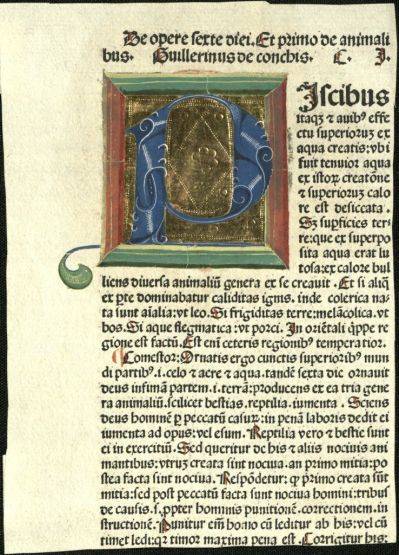 De opere sexte diei. Et primo de animali
bus. Guillerinus de conchis. C. I.
PIscibus
itaqȝ ⁊ auibꝰ effe
ctu superioruȝ ex
aqua creatis: vbi
fuit tenuior aqua
ex istoꝝ creatōne
⁊ superioruȝ calo
re est desiccata.
Sȝ supficies ter-
re: que ex superpo
sita aqua erat lu
tosa: ex calore bul
liens diuersa animaliū genera ex se creauit. Et si aliq̄
ex pte dominabatur caliditas ignis. inde colerica na-
ta sunt aīalia: vt leo. Si frigiditas terre: melācolica. vt
bos. Si aque flegmatica: vt porci. In oriētali q̄ppe re
gione est factū. Est em̄ ceteris regionibꝰ temperatior.
Comestor: Ornatis ergo cunctis superioribꝰ mun
di partibꝰ. i. celo ⁊ aere ⁊ aqua. tandē sexta die ornauit
deus infimā partem. i. terrā: producens ex ea tria gene
ra animaliū. scilicet bestias. reptilia. iumenta. Sciens
deus hominē p peccatū casurū: in penā laboris dedit ei
iumenta ad opus: vel esum. Reptilia vero ⁊ bestie sunt
ei in exercitiū. Sed queritur de his ⁊ aliis nociuis ani
mantibus: vtruȝ creata sint nociua. an primo mitia: po
stea facta sint nociua. Respōdetur: ꝙ primo creata sūt
mitia: sed post peccatū facta sunt nociua homini: tribus
de causis. s. ppter hominis punitionē. correctionem. in
structionē. Punitur em̄ homo cū leditur ab his: vel cū
timet ledi: qꝛ timor maxima pena est. Corrigitur his: